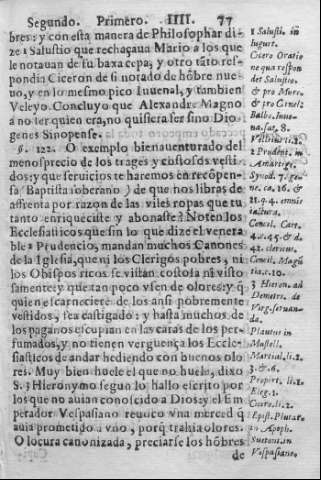 Segundo. Primero. IIII. 77
bres: y con esta manera de Philosophar di-
ze 1 Salustio que rechaçaua Mario a los que
le notauan de su baxa cepa, y otro tãto res-
pondia Ciceron de si notado de hõbre nue-
uo, y en lo mesmo pico Iuuenal, y tambien
Veleyo. Concluyo que Alexandre Magno
a no ser quien era, no quisiera ser sino Dio
genes Sinopense.
§. 122. O exemplo bienauenturado del
menosprecio de los trages y costosos vesti-
dos: y que seruicios te haremos en recõpen-
sa (Baptista soberano) de que nos libras de
affrenta por razon de las viles ropas que tu
tanto enriqueciste y abonaste? Noten los
Ecclesiasticos que sin lo que dize el venera
ble 2 Prudencio, mandan muchos Canones
de la Iglesia, que ni los Clerigos pobres, ni
los Obispos ricos se vistan costosa ni visto
samente: y que tan poco vsen de olores: y q̃
quien escarneciere de los ansi pobremente
vestidos, sea castigado: y hasta muchos de
los paganos escupian en las caras de los per-
fumados, y no tienen verguença los Eccle-
siasticos de andar hediendo con buenos olo
res. Muy bien huele el que no huele, dixo
S. 3 Hieronymo segun lo hallo escrito por
los que no auian conoscido a Dios: y el Em
perador Vespasiano reuoco vna merced q̃
auia prometido a vno, porq̃ trahia olores.
O locura canonizada, preciarse los hõbres
de
1 Salusti. in
Iugurt.
Cicero Oratio
ne qua respon
det Salustio.
& pro Mure.
& pro Cornel.
Balbo. Iuue-
na. sat. 8.
2 Prudent. in
Synod. 7. ge-
ne. ca. 16. &
21. q. 4. omnis
iactura.
Concil. Cart.
4. c. 45. & d.
41. clericus.
Concil. Magũ
tia. c. 10.
3 Hieron. ad
Demetr. de
Virg. seruan-
da.
Plautus in
Mostell.
Martial. li. 2.
3. & 6.
Propert. li. 2.
Eleg. 1.
Cicero. li. 2.
Epist. Plutar.
in Apoph.
Sueton. in
Vespasiano.